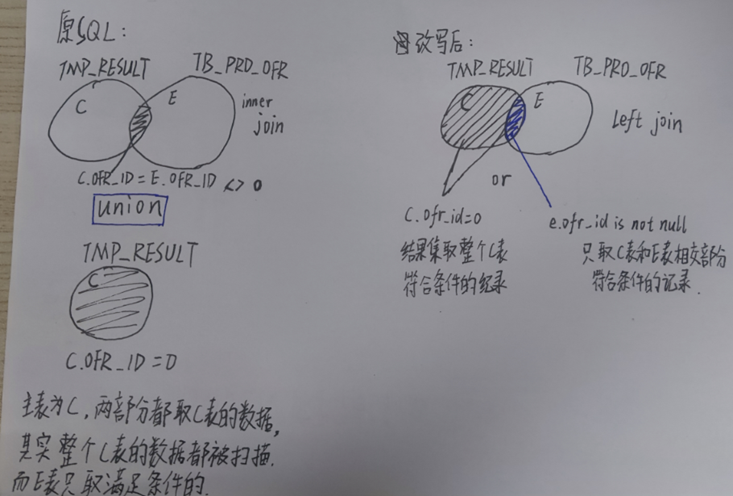 原SQL:
TMP_RESULT TB_PRD_OFR
C E inner
join
C.OFR_ID = E.OFR_ID <> 0
union
TMP_RESULT
C
C.OFR_ID = 0
主表为C,两部分都取C表的数据,
其实整个C表的数据都被扫描.
而E表只取满足条件的.
改写后:
TMP_RESULT TB_PRD_OFR
C E Left join
or
C.ofr_id=0 e.ofr_id is not null
结果集取整个C表 只取C表和E表相交部分
符合条件的纪录 符合条件的记录.